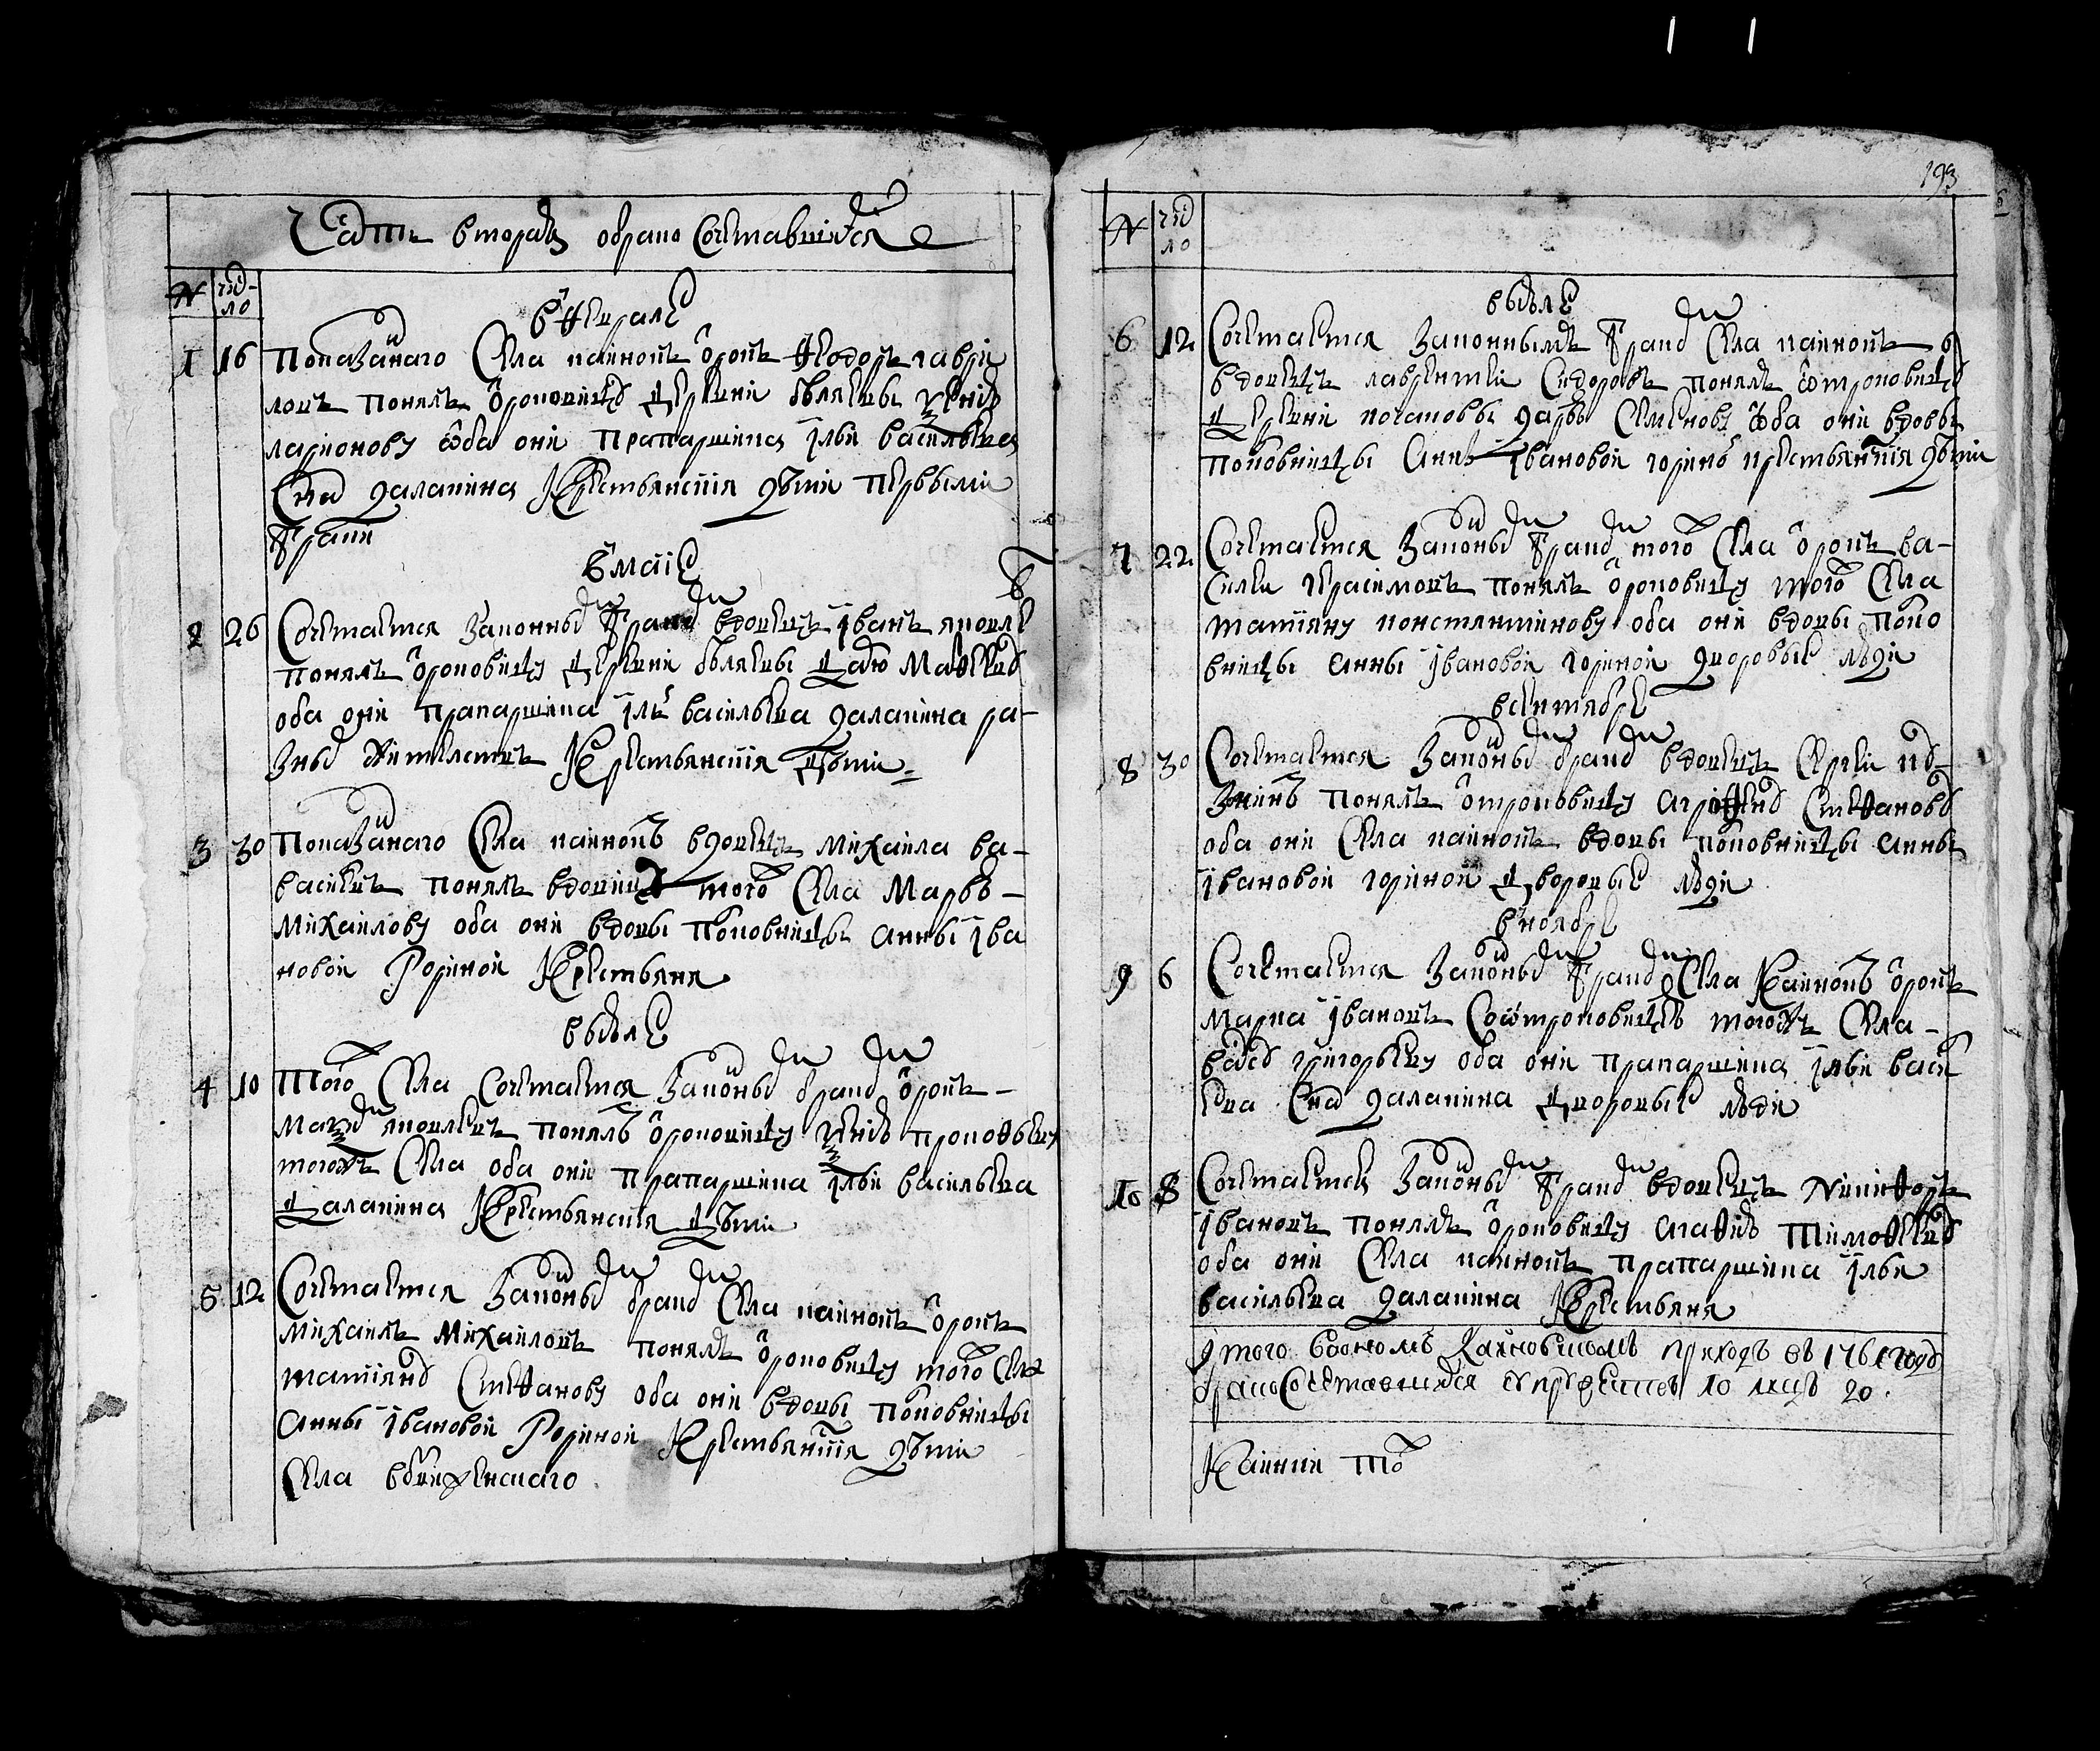 Часть вторая о бракосочетавшихся
№ число
в феврале
1 16 Показанаго села Каинокъ отрокъ Федоръ гаври
ловъ понялъ отроковицу деревни беляевы
ларионову оба они прапарщика Ильи васильева
сна далакина крестьянския дѣти первыми
браки
в маие
2 26 Сочетается законнымъ бракомъ вдовецъ иванъ яковле
понялъ отроковицу деревни беляевы дарю Мафееву
оба они прапарщика Илъи васильева далакина ра
зныхъ жителствъ Крестьянския дѣти
3 30 Показанаго села каинокъ вдовецъ михаила ва
васильевъ понялъ вдовицу того села Марѳу
Михаилову оба они вдовы полковницы анны ива
новой Гориной Крестьяня
в июле
4 10 Того села Сочетается законымъ бракомъ отрокъ
яковлевъ понялъ отроковицу прокофьеву
тогожъ села оба они прапарщика Ильи васильева
далакина Крестьянския дѣти
5 12 Сочетается законымъ бракомъ села каинокъ отрокъ
михаилъ михаиловъ понялъ отроковицу того села
татияну Стефанову оба они вдовы полковницы
Анны ивановой Гориной Крестьянския дѣти
села
193
№ число
в июле
6 12 Сочетается законнымъ бракомъ села каинокъ
вдовецъ лаврентеи Сидоровъ понялъ отроковицу
деревни дарю Семенову оба они вдовы
полковницы Анны ивановой горины крестьянския дѣти
7 22 Сочетается законымъ бракомъ того села отрокъ ва-
силеи герасимовъ понялъ отроковицу того села
татияну констянтинову оба они вдовы полко
вницы анны ивановой гориной дворовые люди
в сентябре
8 30 Сочетается законымъ бракомъ вдовецъ Сергеи ку
зминъ понялъ отроковицу агрофену Стефанову
оба они села каинокъ вдовы полковницы анны
ивановой гориной дворовые люди
в ноябре
9 6 Сочетается законымъ бракомъ села Каинокъ отрокъ
марка ивановъ Со отроковицею тогожъ села
григорьеву оба они прапарщика ильи васи
ева сна далакина дворовые люди
10 8 Сочетается законымъ бракомъ вдовецъ Никифоръ
ивановъ понялъ отроковицу агафию Тимофееву
оба они села каинокъ прапарщика ильи
васильева далакина Крестьяня
Итого в ономъ Каиновскомъ приходѣ въ 1761 году
бракосочетавшихся супружествъ 10 лицъ 20.